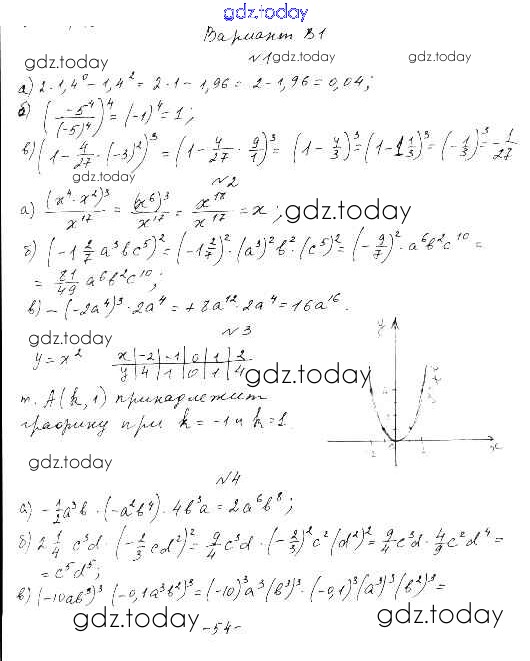 gdz.today
Вариант В1
gdz.today
№1 gdz.today
gdz.today
а) 2·1,4⁰ - 1,4² = 2·1 - 1,96 = 2 - 1,96 = 0,04;
б) (-5⁴/(-5)⁴)⁴ = (-1)⁴ = 1;
в) (1 - 4/27 · (-3)²)³ = (1 - 4/27 · 9/1)³ = (1 - 4/3)³ = (1 - 1 1/3)³ = (-1/3)³ = -1/27
gdz.today
№2
а) (x⁴·x²)³/x¹⁷ = (x⁶)³/x¹⁷ = x¹⁸/x¹⁷ = x;
gdz.today
б) (-1 2/7 a³bc⁵)² = (-1 2/7)²·(a³)²b²·(c⁵)² = (-9/7)²·a⁶b²c¹⁰ =
= 81/49 a⁶b²c¹⁰;
в) -(-2a⁴)³·2a⁴ = +8a¹²·2a⁴ = 16a¹⁶.
gdz.today
№3
y = x²
x -2 -1 0 1 2
y 4 1 0 1 4
gdz.today
т. A(k,1) принадлежит
графику при k = -1 и k = 1.
gdz.today
№4
а) -1/2a³b·(-a²b⁴)·4b³a = 2a⁶b⁸;
б) 2 1/4 c³d·(-2/3cd²)² = 9/4c³d·(-2/3)²c²(d²)² = 9/4c³d·4/9c²d⁴ =
= c⁵d⁵;
в) (-10ab³)³·(-0,1a³b²)³ = (-10)³a³(b³)³·(-0,1)³(a³)³(b²)³ =
gdz.today
-54-
gdz.today
gdz.today